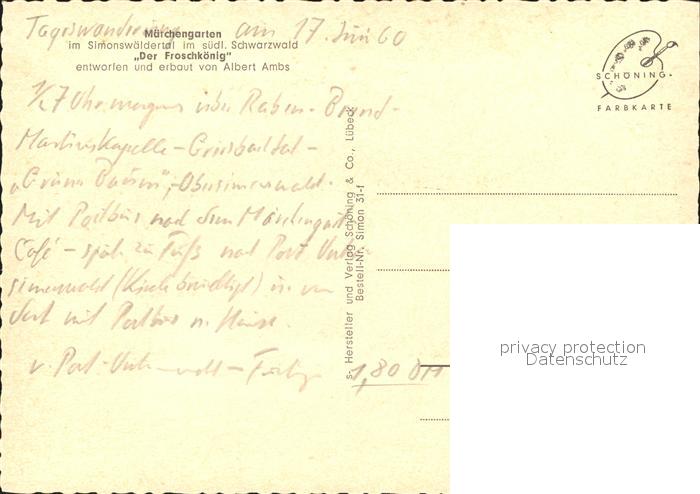 Tageswanderung am 17. Juni 60
Märchengarten
im Simonswäldertal im südl. Schwarzwald
„Der Froschkönig"
entworfen und erbaut von Albert Ambs
SCHÖNING
FARBKARTE
1/2 7 Uhr morgens über Raben-
Martinskapelle - Griesbachtal -
„Grüne Baum", Obersimonswald.
Mit Postbus nach dem Märchengarten
Café - später zu Fuß nach Post Unter-
simonswald (Kirche besichtigt) in
dort mit Postbus n. Hause.
v. Post - 1,80 DM
Hersteller und Verlag Schöning & Co., Lübeck
Bestell-Nr. Simon 31-f
privacy protection
Datenschutz